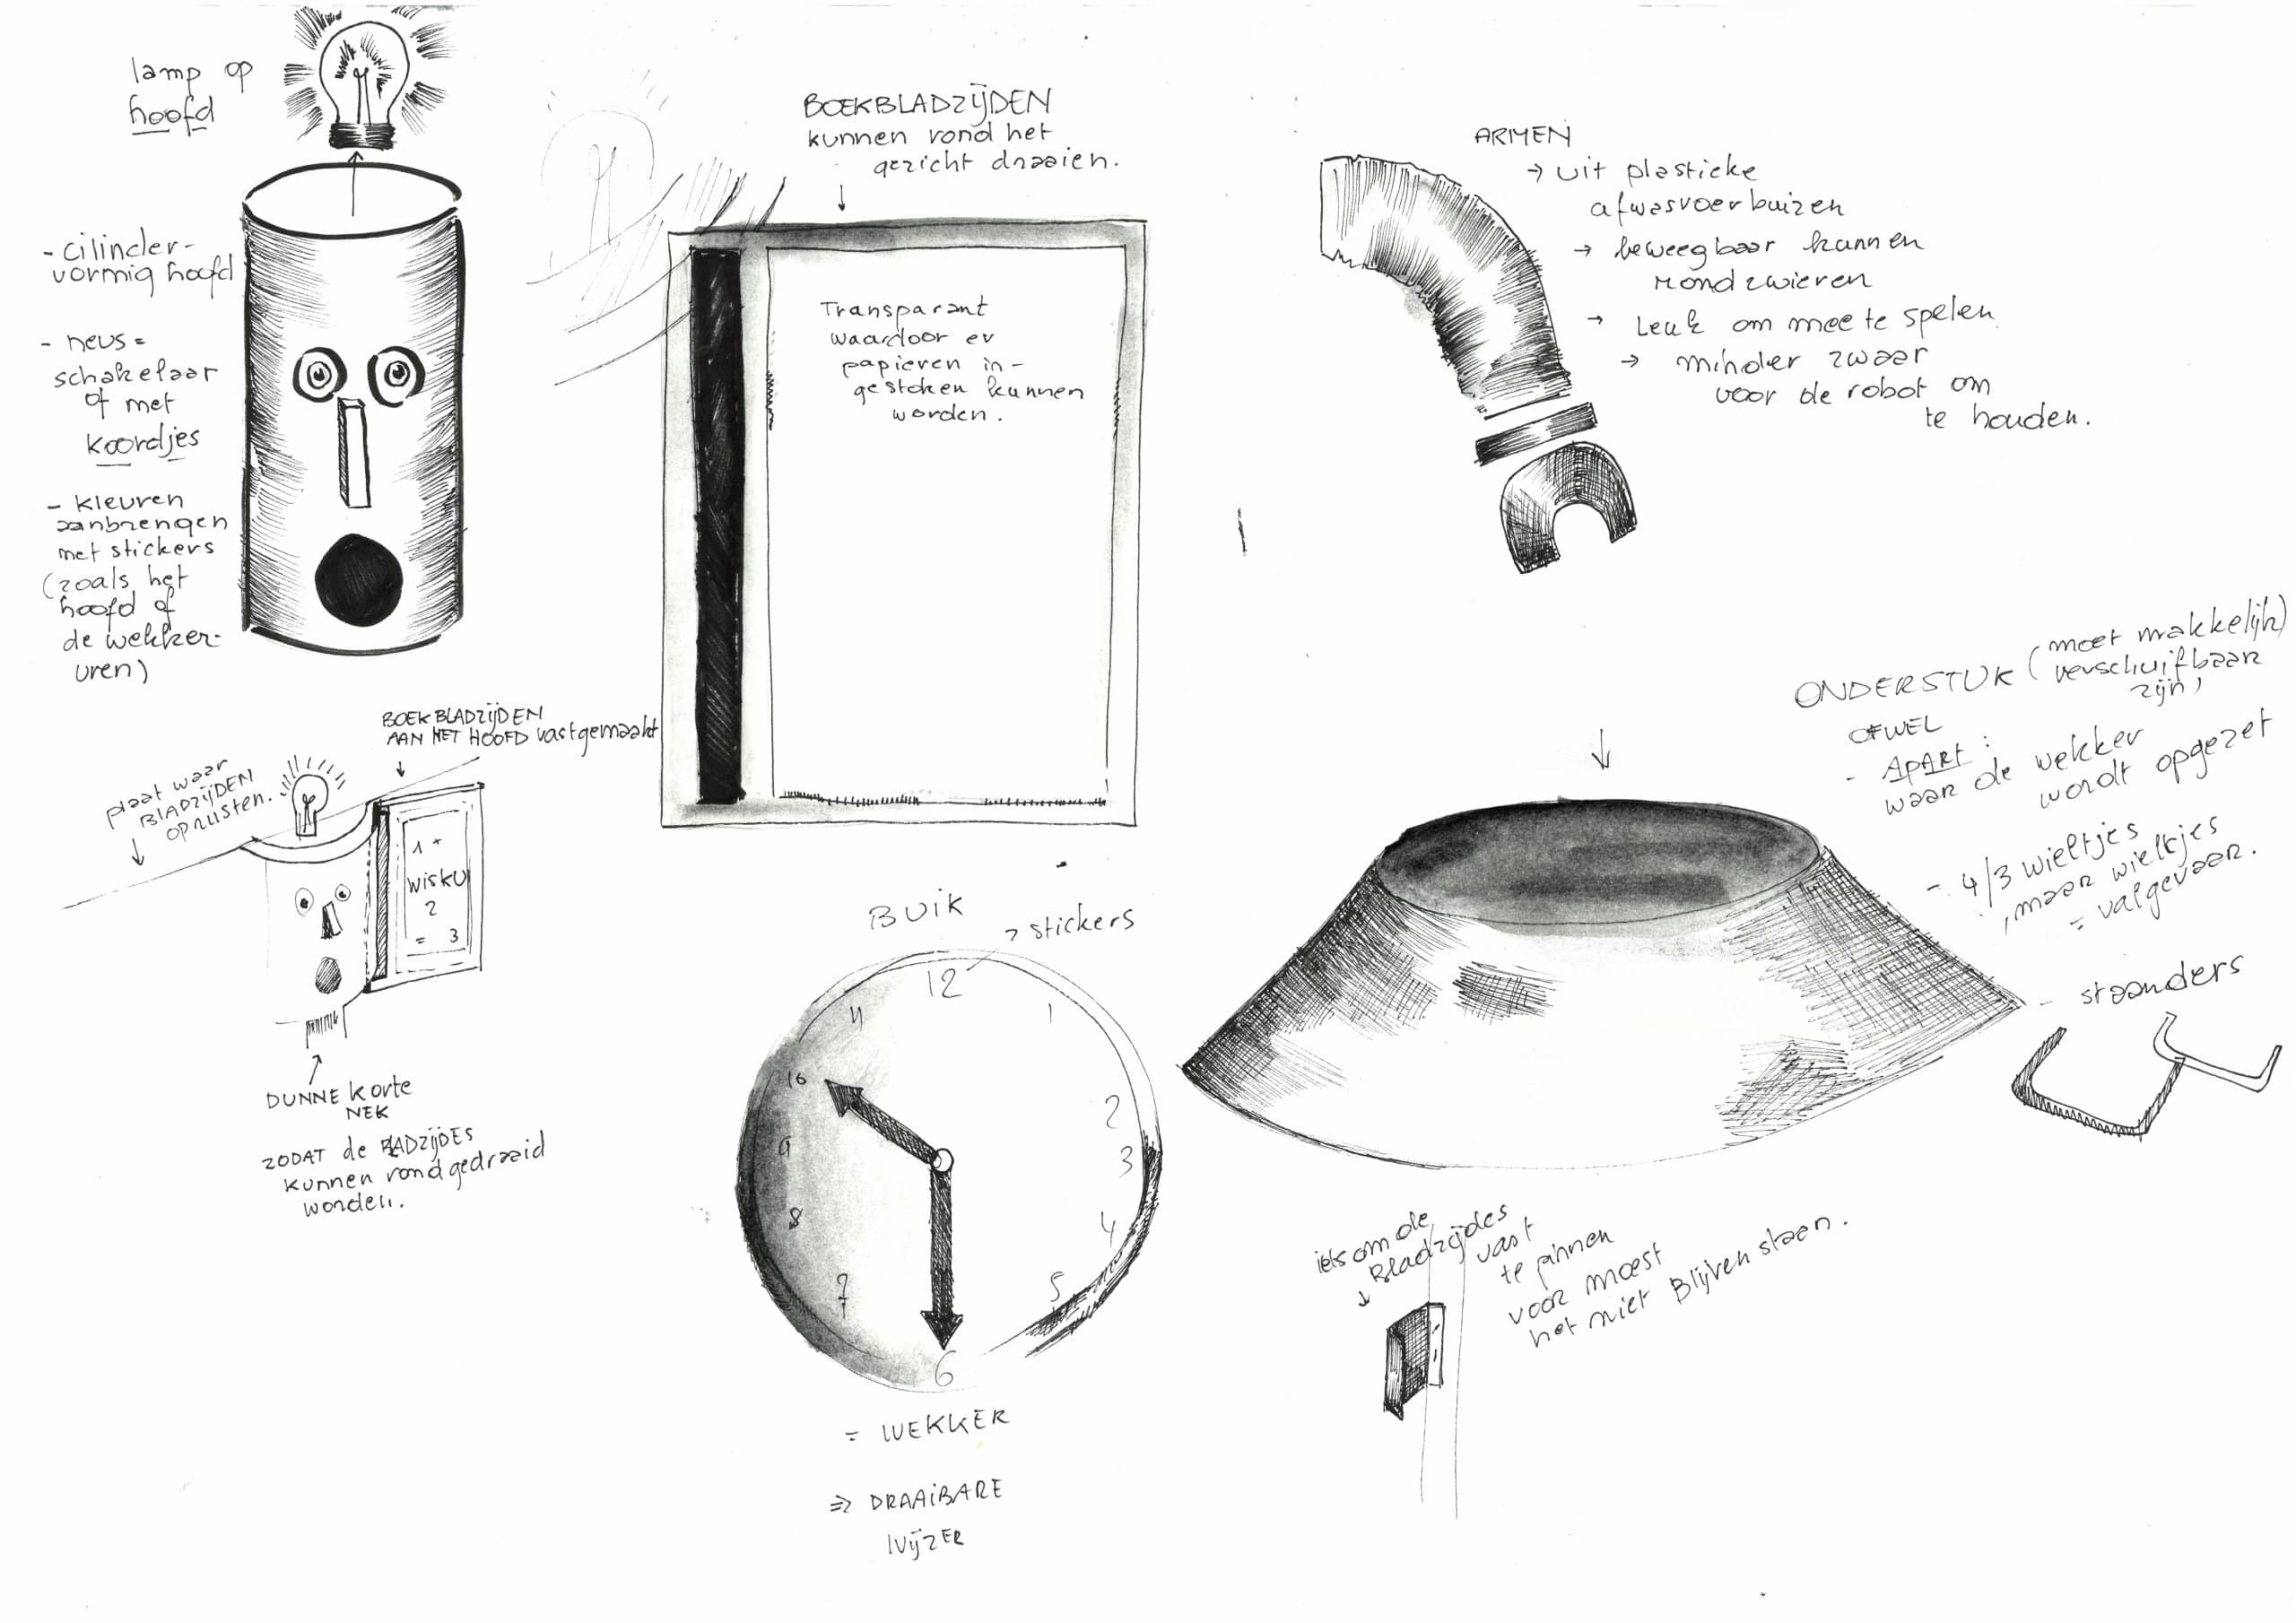 lamp op
hoofd
- cilinder-
vormig hoofd
- neus =
schakelaar
of met
koordjes
- kleuren
aanbrengen
met stickers
(zoals het
hoofd of
de wekker-
uren)
BOEKBLADZIJDEN
kunnen rond het
gezicht draaien.
Transparant
waardoor er
papieren in-
gestoken kunnen
worden.
ARMEN
→ uit plastieke
afwasvoerbuizen
→ beweegbaar kunnen
rondzwieren
→ Leuk om mee te spelen
→ minder zwaar
voor de robot om
te houden.
BOEKBLADZIJDEN
AAN HET HOOFD vastgemaakt
plaat waar
BLADZIJDEN
oprusten.
1 +
WISKU
2
= 3
DUNNE korte
NEK
ZODAT de BLADZIJDES
kunnen rondgedraaid
worden.
BUIK
→ stickers
12
11
1
10
2
9
3
8
4
7
5
6
= WEKKER
⇒ DRAAIBARE
WIJZER
ONDERSTUK (moet makkelijk)
verschuifbaar
zijn)
OFWEL
- APART :
waar de wekker
wordt opgezet
- 4/3 wieltjes
, maar wieltjes
= valgevaar.
- staanders
iets om de
Bladzijdes
vast
te pinnen
voor moest
het niet Blijven staan.